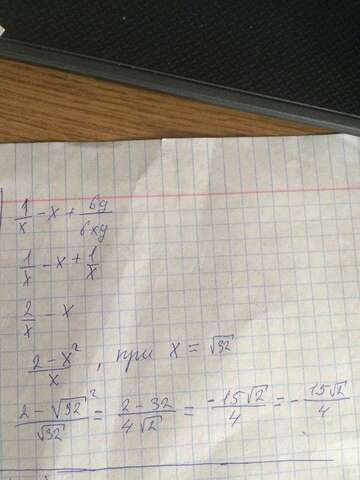 1/x - x + 6y/6xy
1/x - x + 1/x
2/x - x
2 - x²/x , при x = √32
2 - √32²/√32 = 2 - 32/4√2 = -15√2/4 = - 15√2/4